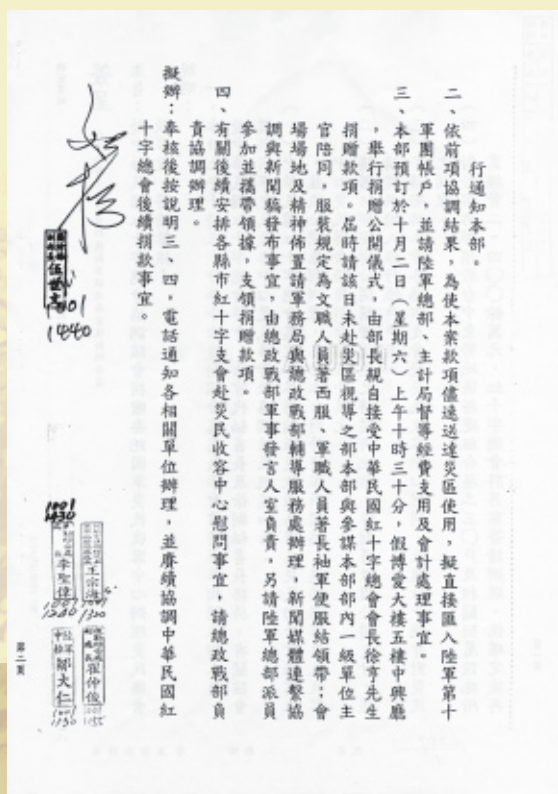 行通知本部。
二、依前項協調結果，為使本案款項儘速送達災區使用，擬直接匯入陸軍第十
軍團帳戶，並請陸軍總部、主計局督籌經費支用及會計處理事宜。
三、本部預訂於十月二日（星期六）上午十時三十分，假博愛大樓五樓中興廳
，舉行捐贈公開儀式，由部長親自接受中華民國紅十字總會會長徐亨先生
捐贈款項。屆時請該日未赴災區視導之部本部與參謀本部部內一級單位主
官陪同，服裝規定為文職人員著西服、軍職人員著長袖軍便服結領帶；會
場場地及精神佈置請軍務局與總政戰部輔導服務處辦理，新聞媒體連繫協
調與新聞稿發布事宜，由總政戰部軍事發言人室負責，另請陸軍總部派員
參加並攜帶領據，支領捐贈款項。
四、有關後續安排各縣市紅十字支會赴災民收容中心慰問事宜，請總政戰部負
責協調辦理。
擬辦：奉核後按說明三、四，電話通知各相關單位辦理，並賡續協調中華民國紅
十字總會後續捐款事宜。
伍世文
1001
1440
1001
1430
李聖偉
1001
1200
王宗海
1001
1320
鄒大仁
1001
1150
翟仲俊
1001
1155
第二頁